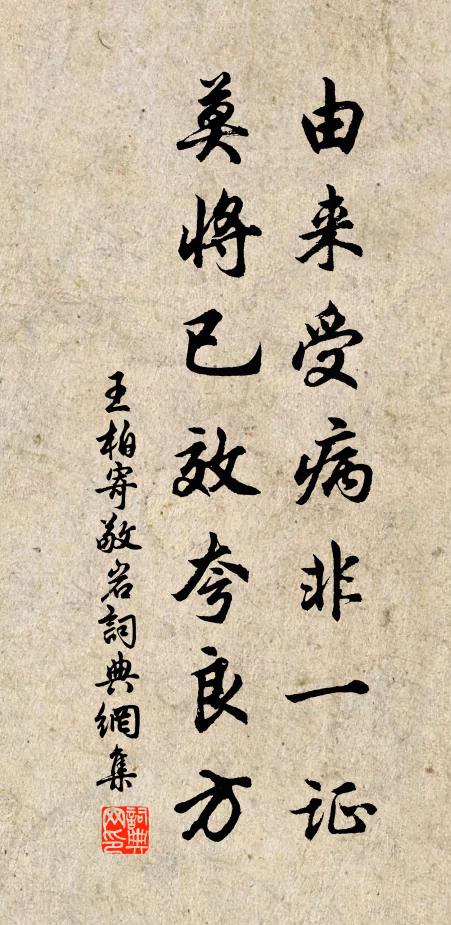 由来受病非一证
莫将已效夸良方
王柏寄敬岩詞典網集
詞典网印